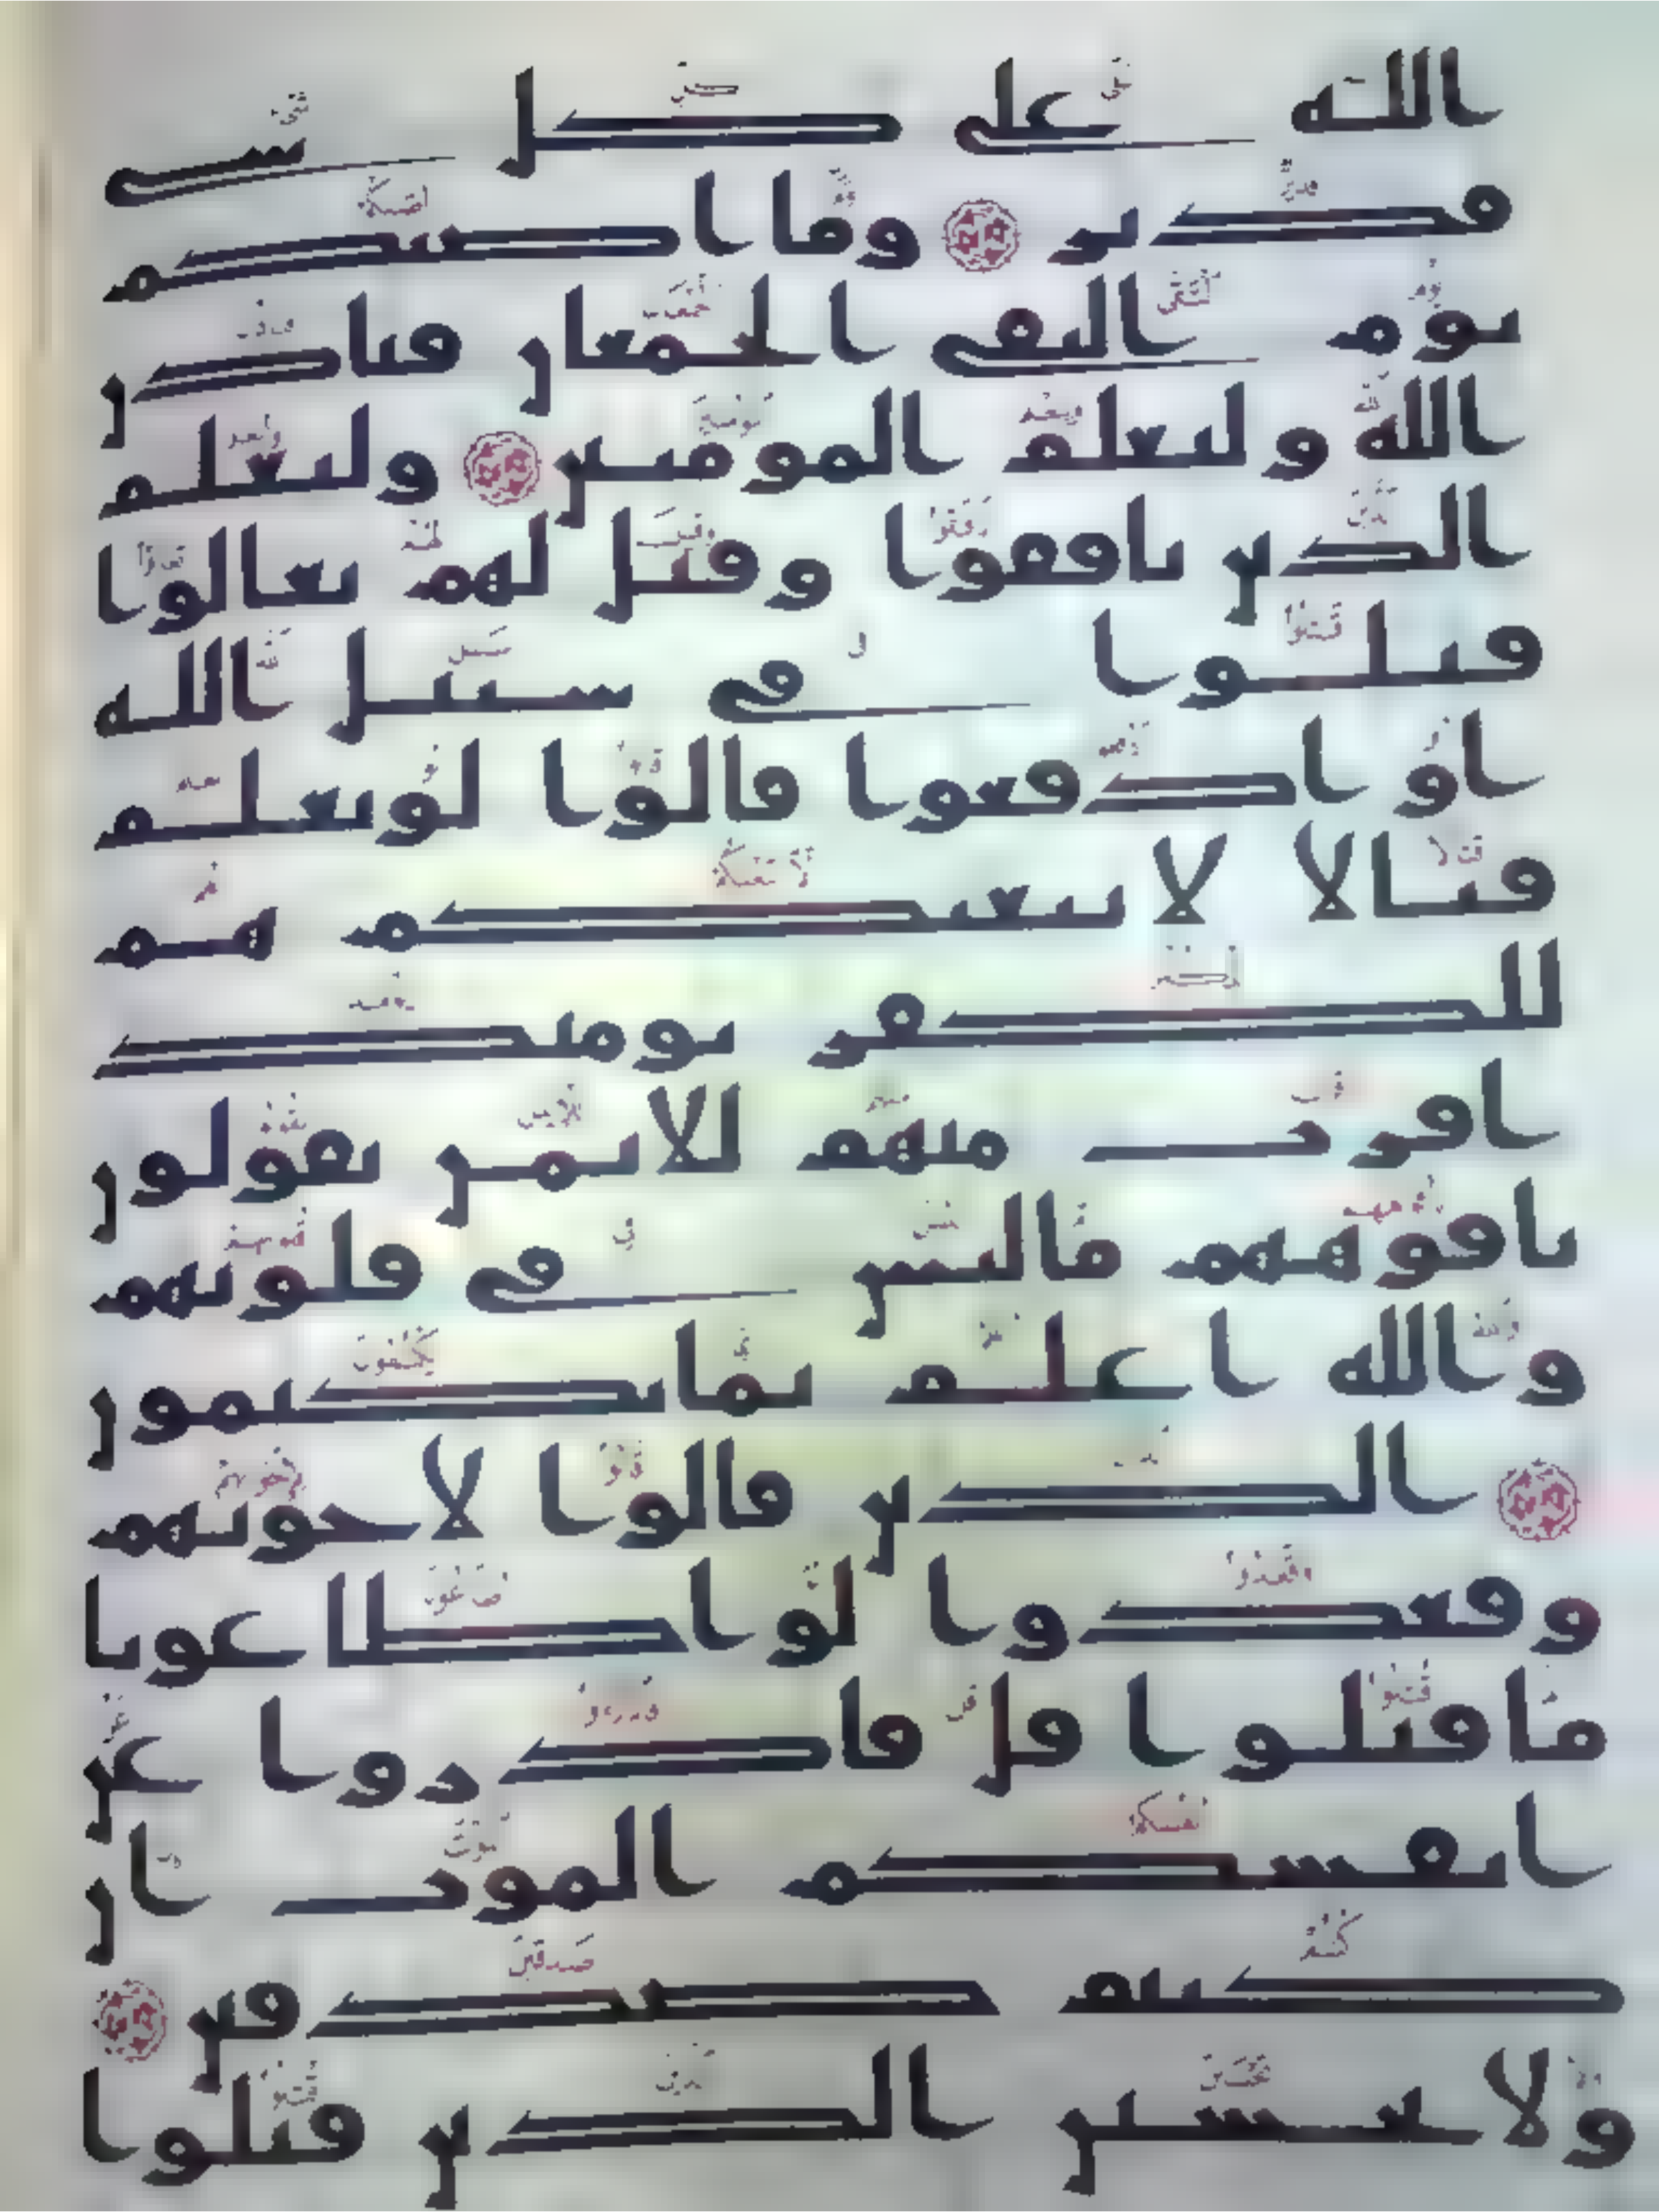 الله على كل شى
قدير وما اصبكم
يوم التقى الجمعان فباذن
الله وليعلم المومنين وليعلم
الذين نافقوا وقيل لهم تعالوا
قتلوا فى سبيل الله
او ادفعوا قالوا لو نعلم
قتالا لا تبعنكم هم
للكفر يومئذ
اقرب منهم للايمن يقولون
بافوههم ما ليس فى قلوبهم
والله اعلم بما يكتمون
الذين قالوا لاخونهم
وقعدوا لو اطاعونا
ما قتلوا قل فادروا عن
انفسكم الموت ان
كنتم صدقين
ولا تحسبن الذين قتلوا